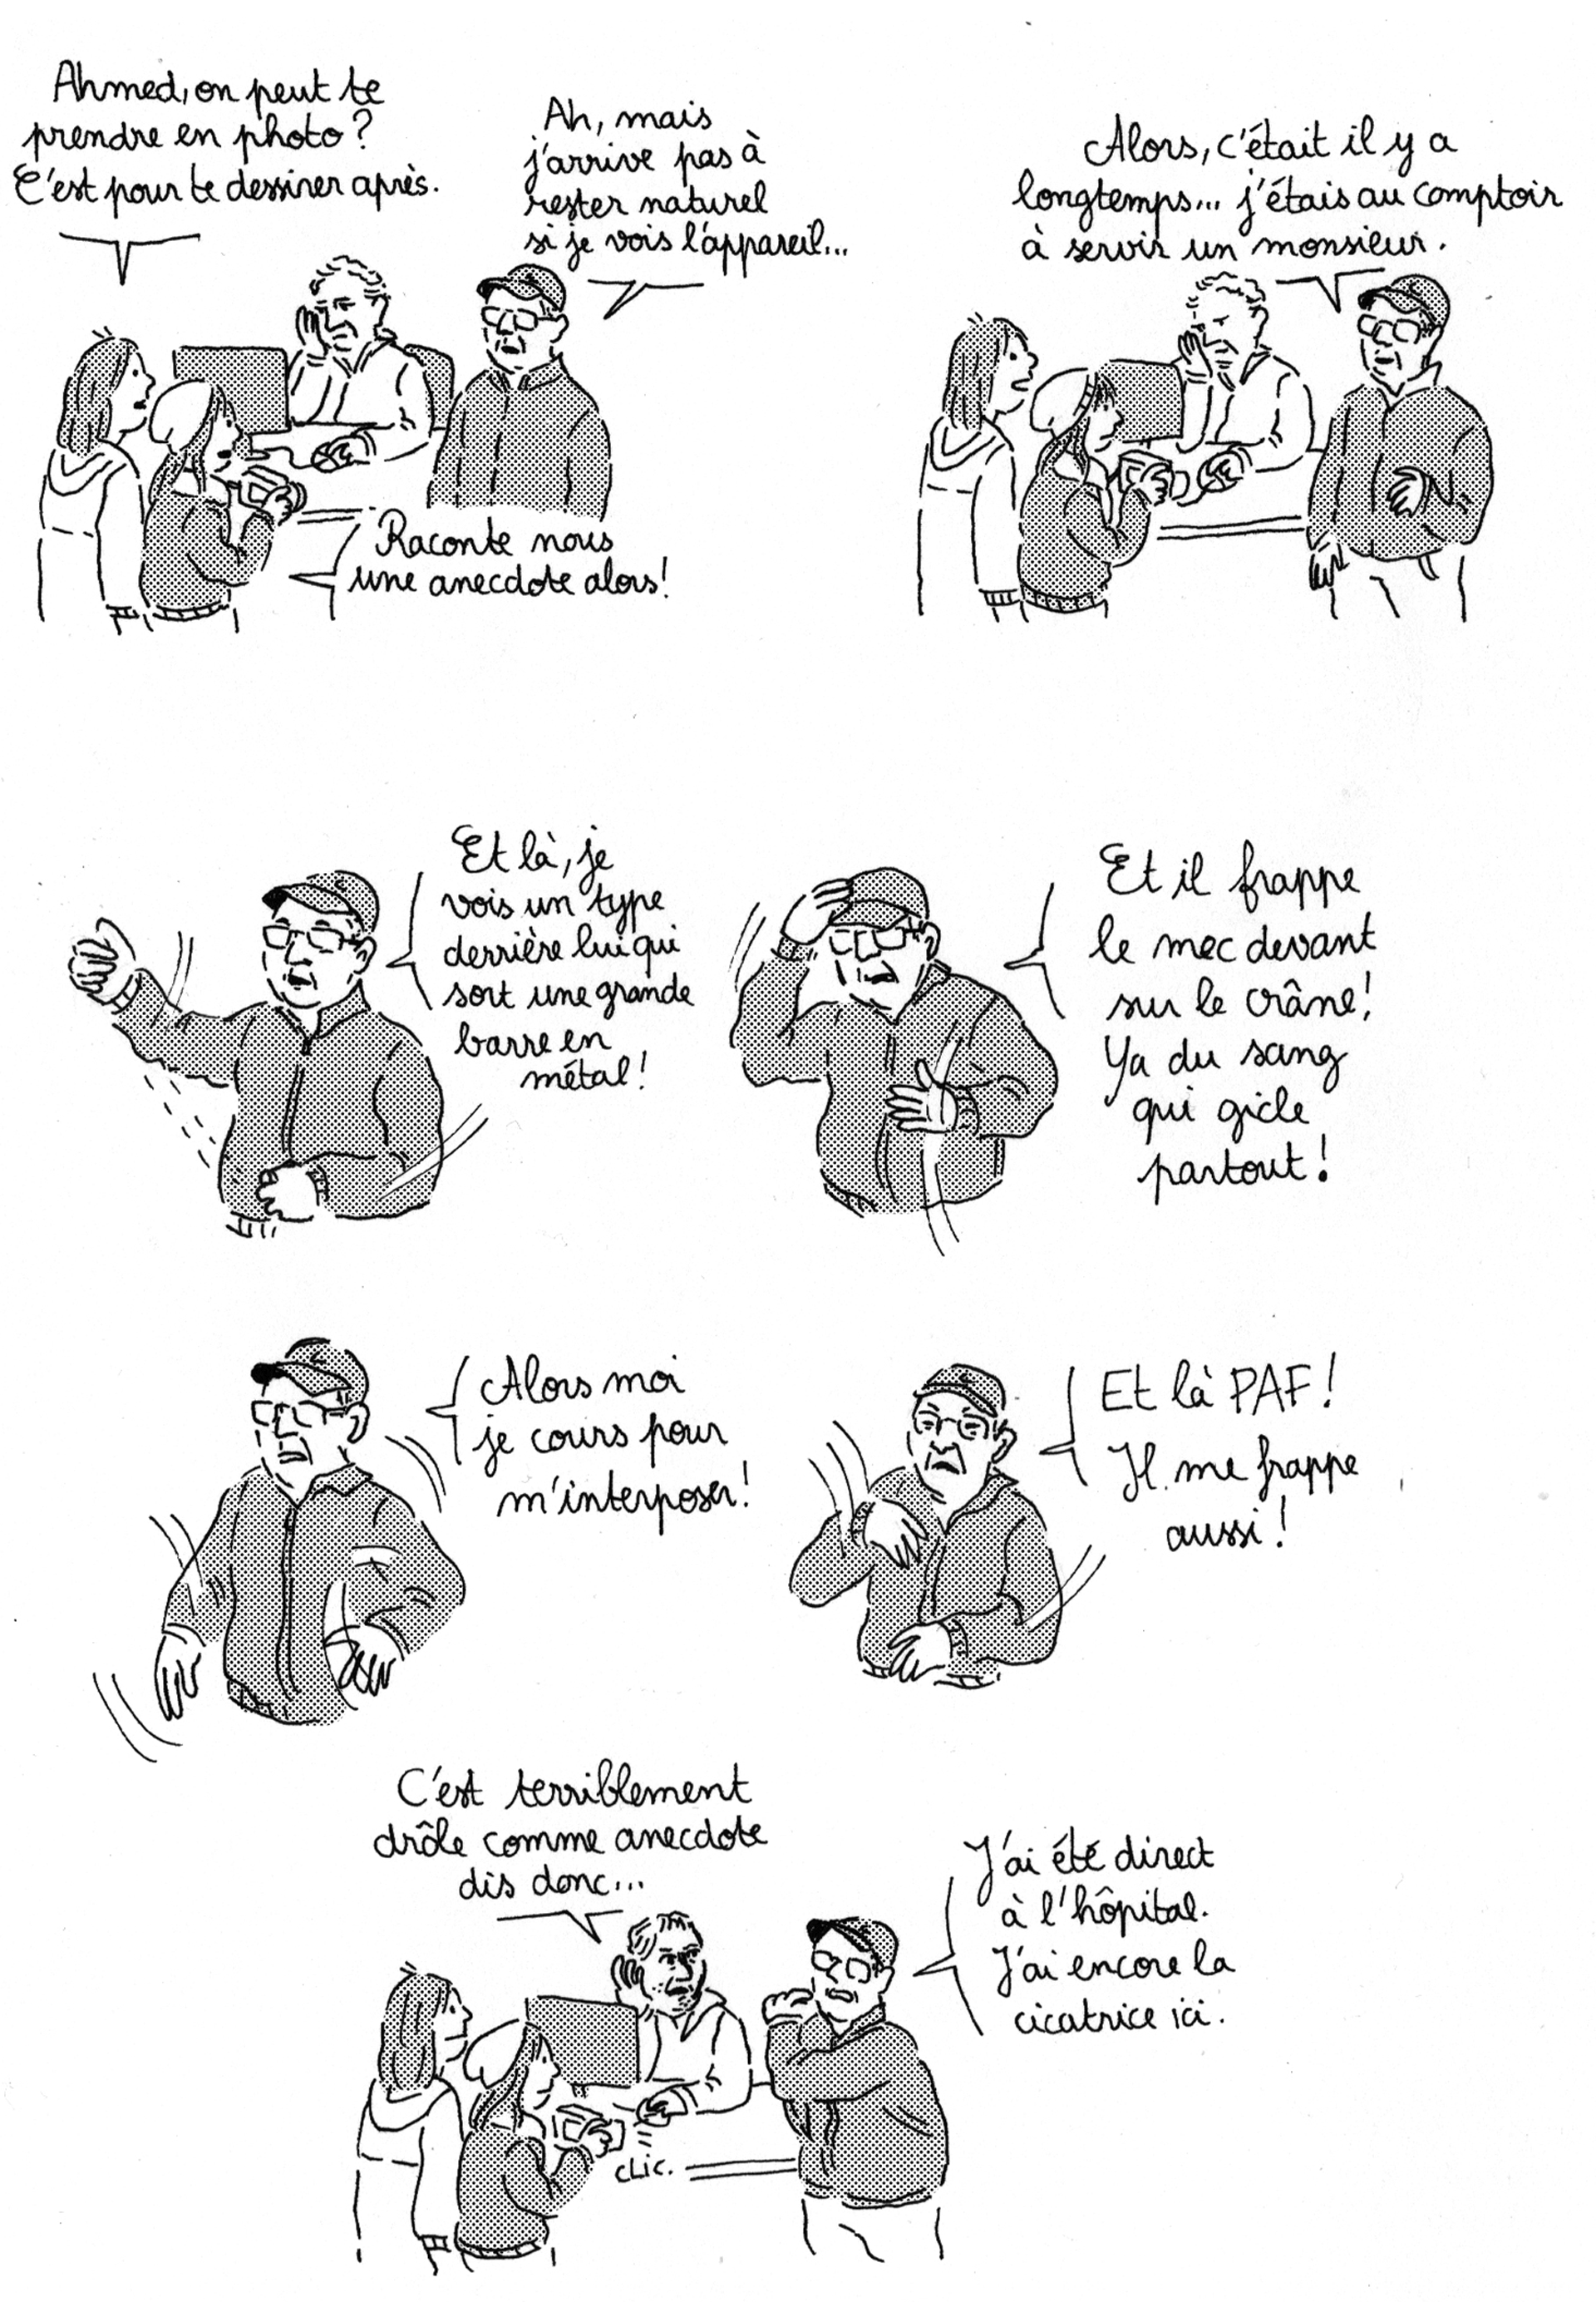 Ahmed, on peut te
prendre en photo?
C'est pour te dessiner après.
Ah, mais
j'arrive pas à
rester naturel
si je vois l'appareil...
Raconte nous
une anecdote alors!
Alors, c'était il y a
longtemps... j'étais au comptoir
à servir un monsieur.
Et là, je
vois un type
derrière lui qui
sort une grande
barre en
métal!
Et il frappe
le mec devant
sur le crâne!
Ya du sang
qui gicle
partout!
Alors moi
je cours pour
m'interposer!
Et là PAF!
Il me frappe
aussi!
C'est terriblement
drôle comme anecdote
dis donc...
J'ai été direct
à l'hôpital.
J'ai encore la
cicatrice ici.
CLIC.